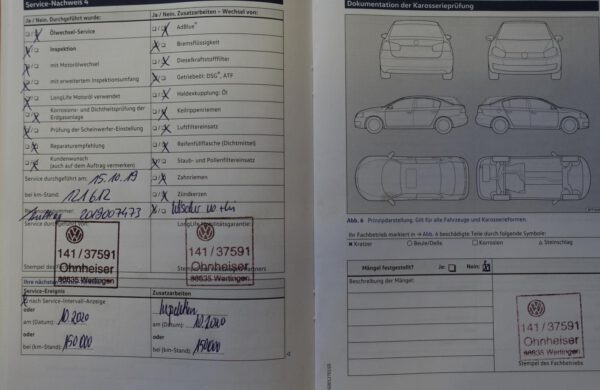 Service-Nachweis 4
Ja / Nein. Durchgeführt wurde:
Ölwechsel-Service
Inspektion
mit Motorölwechsel
mit erweitertem Inspektionsumfang
LongLife Motoröl verwendet
Korrosions- und Dichtheitsprüfung der
Erdgasanlage
Prüfung der Scheinwerfer-Einstellung
Reparaturempfehlung
Kundenwunsch
(auch auf dem Auftrag vermerken)
Service durchgeführt am: 15.10.19
bei km-Stand: 121612
2019007473
Service durchgeführt von:
141/37591
Ohnheiser
86635 Wertingen
Stempel des
Ja / Nein. Zusatzarbeiten – Wechsel von:
AdBlue®
Bremsflüssigkeit
Dieselkraftstofffilter
Getriebeöl: DSG®, ATF
Haldexkupplung: Öl
Keilrippenriemen
Luftfiltereinsatz
Reifenfüllflasche (Dichtmittel)
Staub- und Pollenfiltereinsatz
Zahnriemen
Zündkerzen
LongLife Mobilitätsgarantie:
141/37591
Ohnheiser
86635 Wertingen
Stempel des
Service-Ereignis
nach Service-Intervall-Anzeige
oder
am (Datum): 10.2020
oder
bei (km-Stand): 150000
Zusatzarbeiten
Inspektion
am (Datum): 10.2020
oder
bei (km-Stand): 150000
4
Dokumentation der Karosserieprüfung
Abb. 6 Prinzipdarstellung. Gilt für alle Fahrzeuge und Karosserieformen.
Ihr Fachbetrieb markiert in → Abb. 6 beschädigte Teile durch folgende Symbole:
Kratzer Beule/Delle Korrosion Steinschlag
Mängel festgestellt? Ja: Nein:
Beschreibung der Mängel:
141/37591
Ohnheiser
86635 Wertingen
Stempel des Fachbetriebs